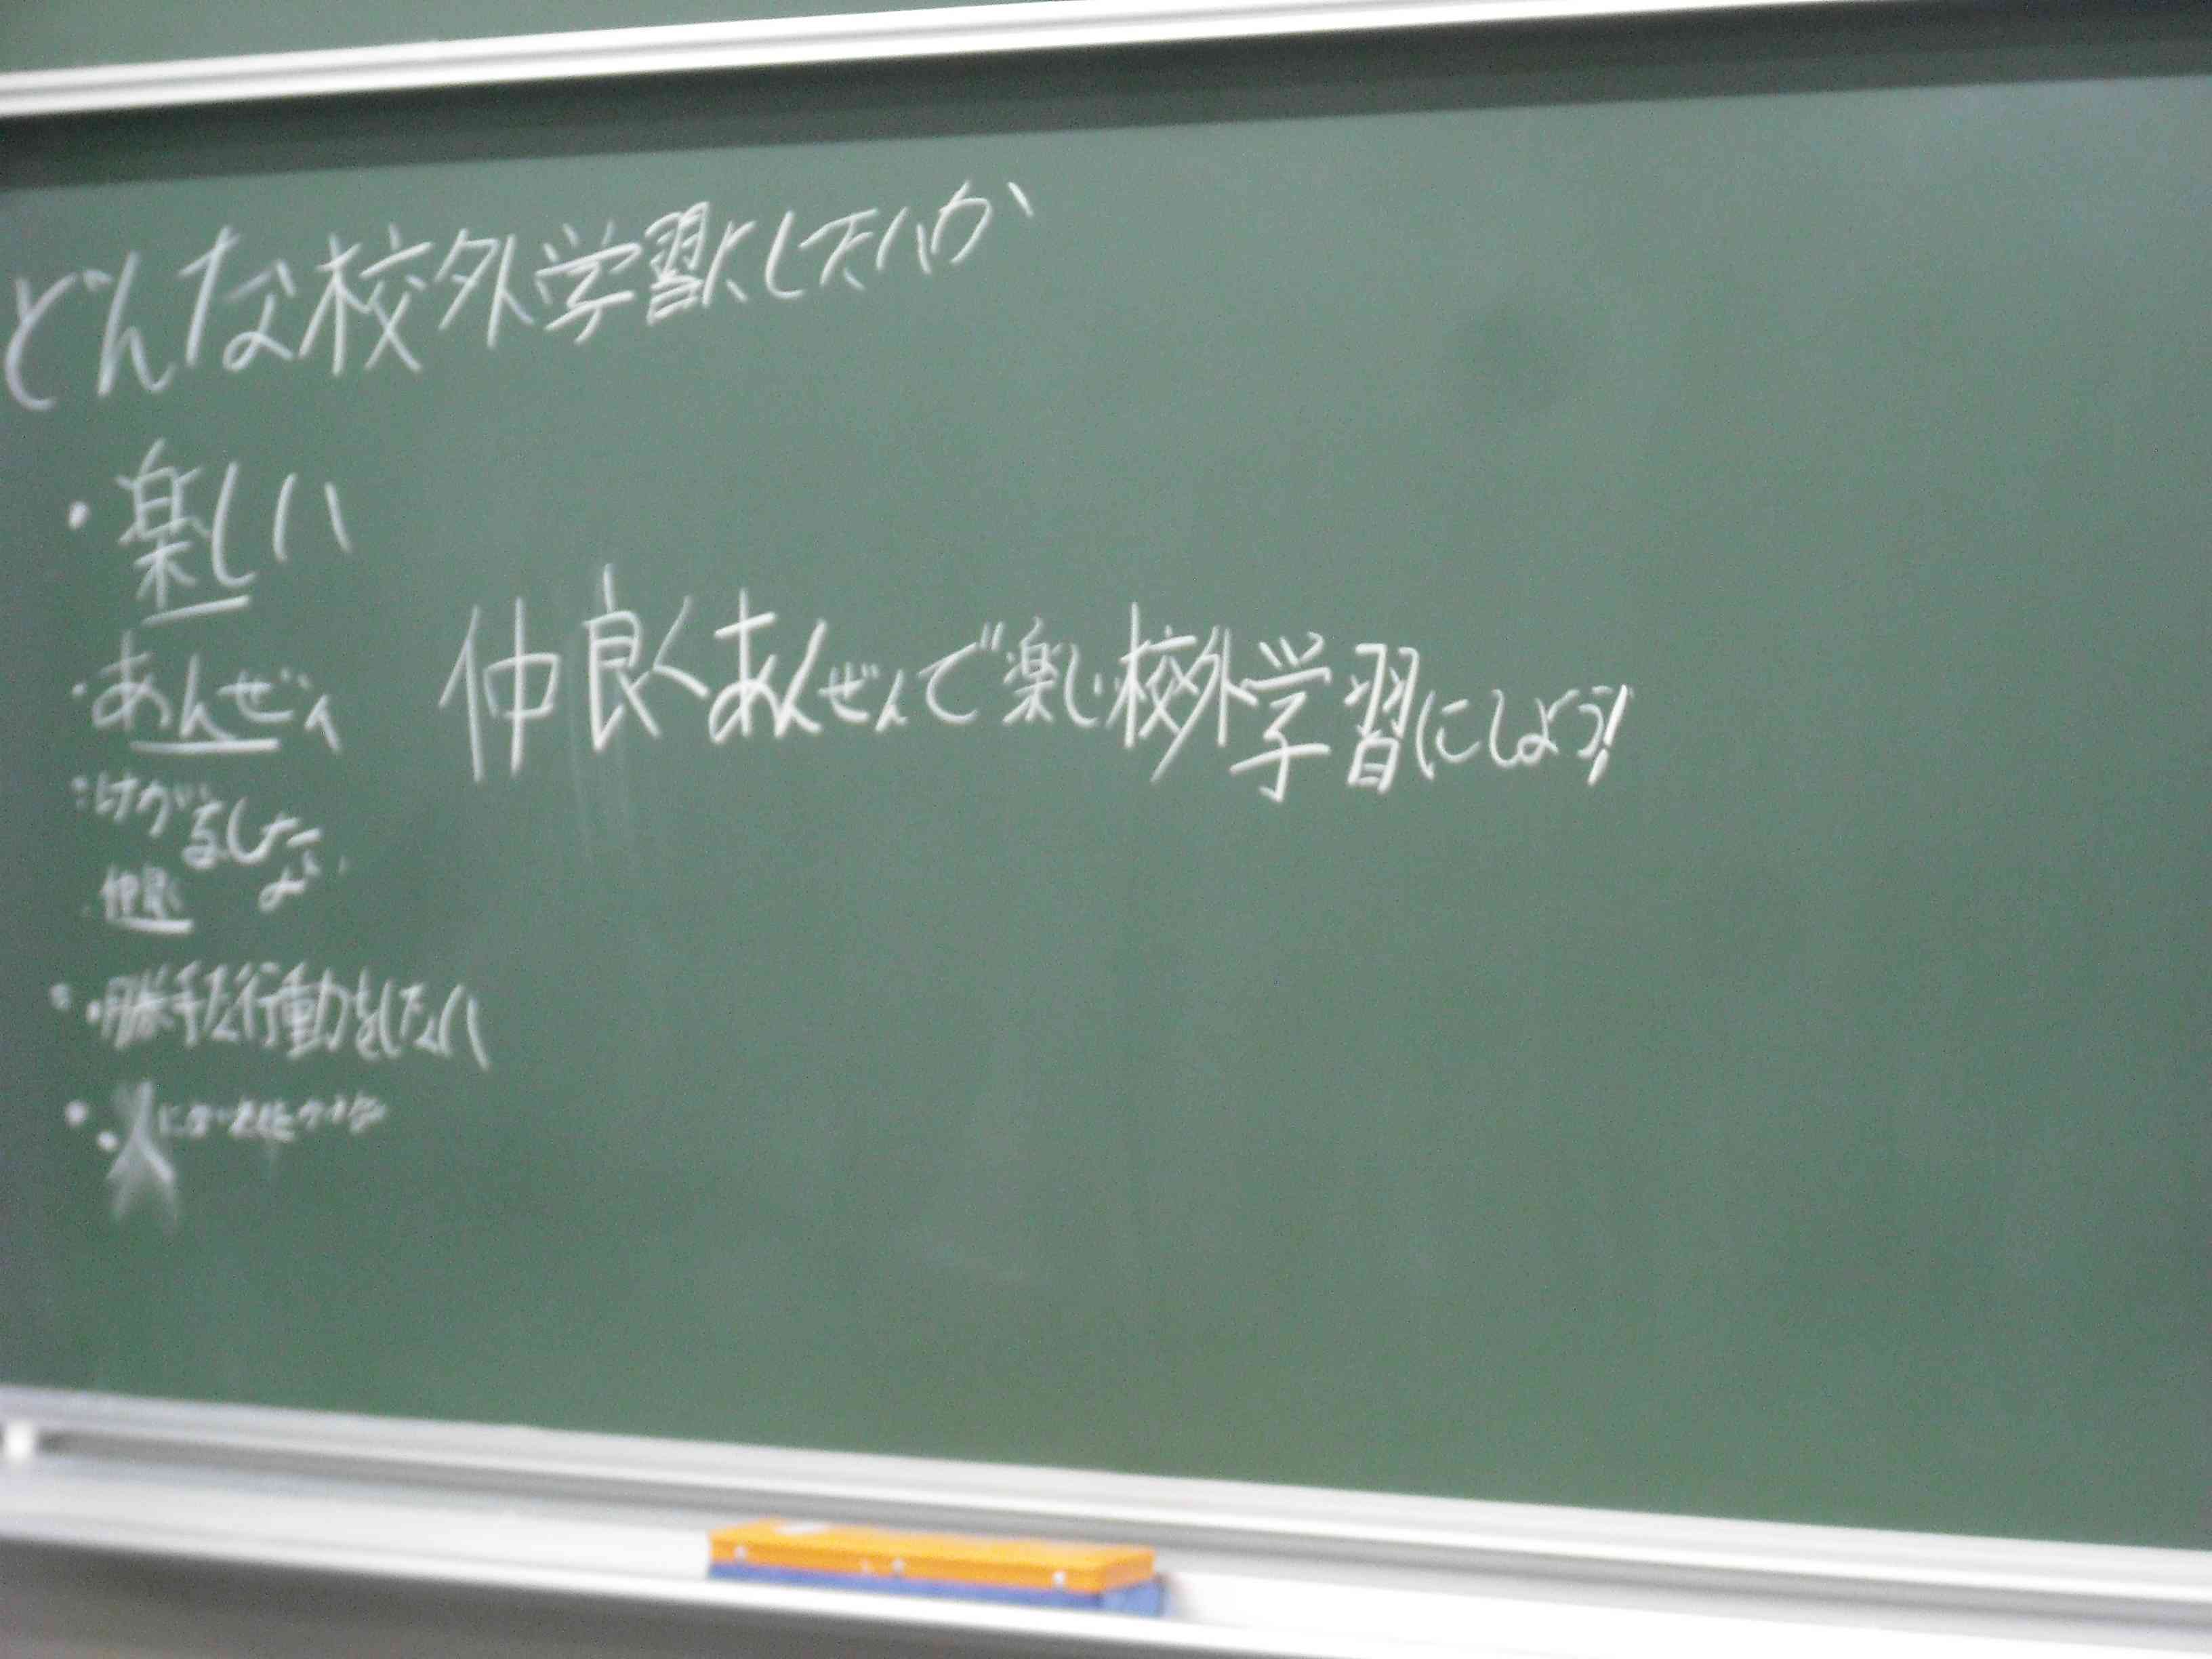 どんな校外学習にしたいか
・楽しい
・あんぜん
・けがをしない
・仲良く
・勝手な行動をしない
・人に
仲良くあんぜんで楽しい校外学習にしよう!